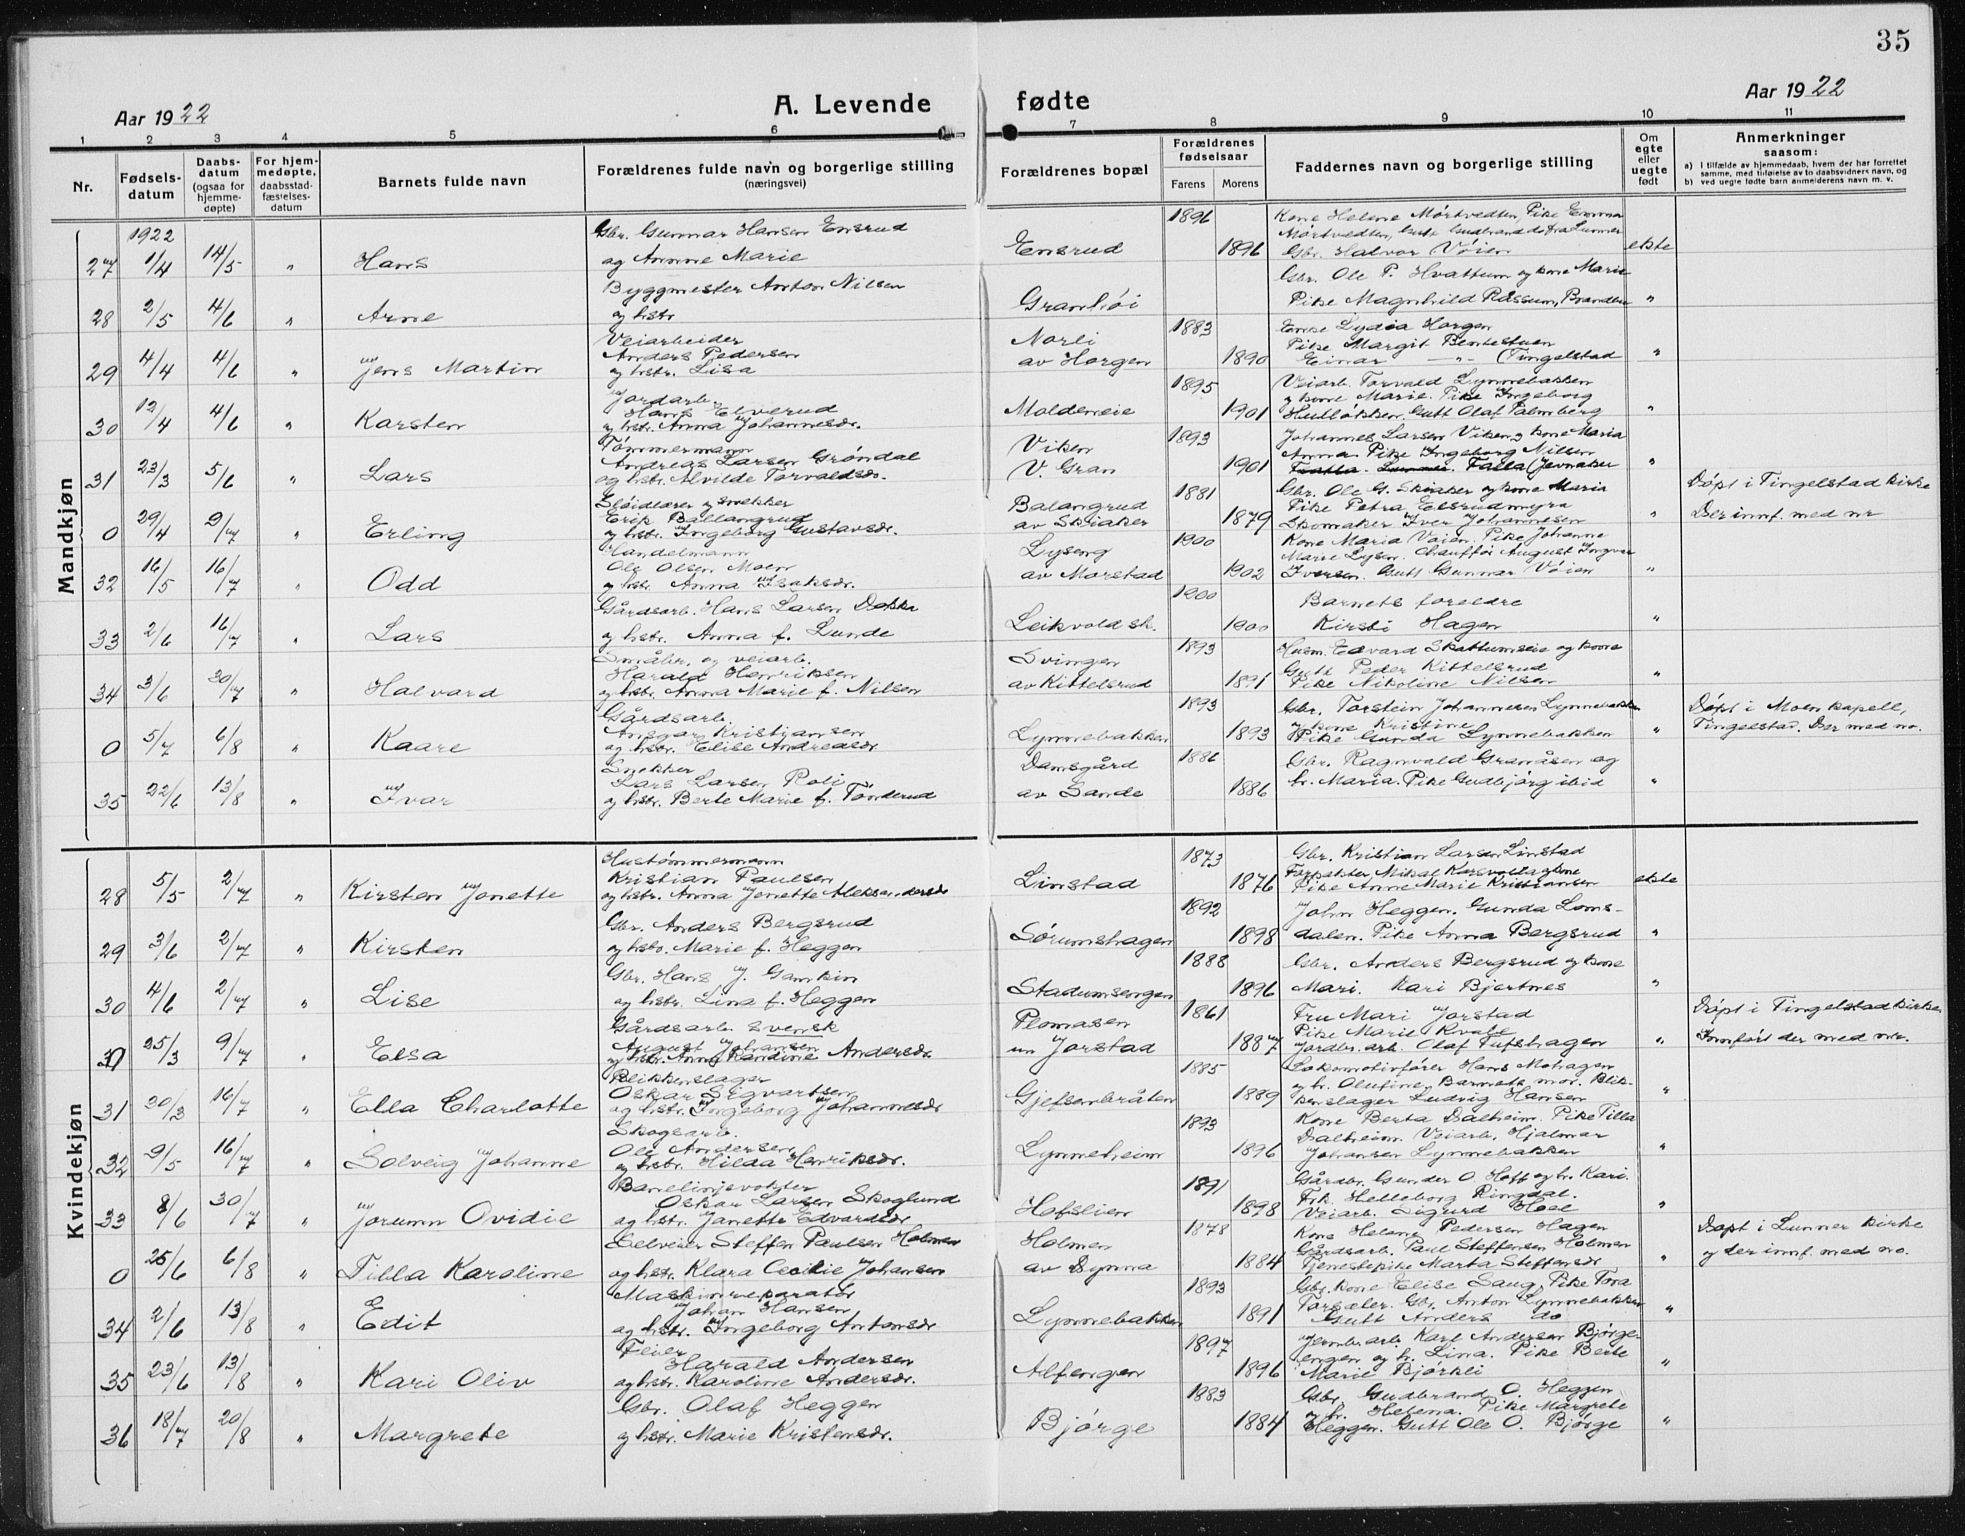 35
Aar 1922
A. Levende fødte
Aar 1922
1 2 3 4 5 6 7 8 9 10 11
Nr.
Fødsels-
datum
Daabs-
datum
(ogsaa for
hjemme-
døpte)
For hjem-
medøpte,
daabsstad-
fæstelses-
datum
Barnets fulde navn
Forældrenes fulde navn og borgerlige stilling
(næringsvei)
Forældrenes bopæl
Forældrenes
fødselsaar
Farens Morens
Faddernes navn og borgerlige stilling
Om
egte
eller
uegte
født
Anmerkninger
saasom:
a) i tilfælde av hjemmedaab, hvem der har forrettet
samme, med tilføielse av to daabsvidners navn, og
b) ved uegte fødte barn anmelderens navn m. v.
Mandkjøn
1922
27 1/4 14/5 " Hans
Gbr. Gunnar Hansen Ensrud
og Anne Marie
Ensrud
1896 1896
Kone Helene Mørtvedten, Pike Emma
Mørtvedten, Gutt Gudbrand do fra Lunner
Gbr. Halvor Vøien
ekte
28 2/5 4/6 " Arne
Byggmester Anton Nilsen
og hstr
Granhøi
Gbr. Ole P. Hvattum og kone Marie
Pike Magnhild Røssum, Brandbu
"
29 4/4 4/6 " Jens Martin
Veiarbeider
Anders Pedersen
og hstr. Lisa
Norli
av Horgen
1883 1890
Enke Lydia Horgen
Pike Margit Bentestuen
Einar —"— (Tingelstad
"
30 12/4 4/6 " Karsten
Jordarb.
Hans Elverud
og hstr. Anna Johannesdr.
Moldeneie
1895 1901
Veiarb. Torvald Lynnebakken
og kone Marie. Pike Ingeborg
Hulløkken. Gutt Olaf Palmberg
"
31 23/3 5/6 " Lars
Tømmermann
Andreas Larsen Grøndal
og hstr. Alvilde Torvaldsdr.
Viken
V. Gran
1893 1901
Johannes Larsen Viken og kone Maria
Anna. Pike Ingeborg Nilsen
Falla (Jevnaker
"
0 29/4 9/7 " Erling
Sløidlærer og snekker
Erik Ballangrud
og hstr. Ingeborg Gustavsdr.
Balangrud
av Skiaker
1881 1879
Gbr. Ole G. Skiaker og kone Maria
Pike Petra Elsrudmyra
Skomaker Iver Johannesen
"
Døpt i Tingelstad kirke
Der innf. med nr
32 16/5 16/7 " Odd
Handelmann
Ole Olsen Moen
og hstr. Anna Isaksdr.
Lyseng
av Morstad
1900 1902
Kone Maria Vøien. Pike Johanne
Marie Lysen. Chauffør August Ingvar
Iversen. Gutt Gunnar Vøien
"
33 2/6 16/7 " Lars
Gårdsarb. Hans Larsen Dokka
og hstr. Anna f. Lunde
Leikvold sk.
1900 1900
Barnets foreldre
Kirsti Hagen
"
34 3/6 30/7 " Halvard
Småbr. og veiarb.
Harald Henriksen
og hstr. Anna Marie f. Nilsen
Svingen
av Kittelsrud
1893 1891
Husm. Edvard Skattumseie og kone
Gutt Peder Kittelsrud
Pike Nikoline Nilsen
"
0 5/7 6/8 " Kaare
Gårdsarb.
Ansgar Kristiansen
og hstr. Elise Andreasdr.
Lynnebakken
1893 1893
Gbr. Torstein Johannesen Lynnebakken
og kone Kristine
Pike Gunda Lynnebakken
"
Døpt i Moen kapell,
Tingelstad. Der med no.
35 22/6 13/8 " Ivar
Snekker
Lars Larsen Roli
og hstr. Berte Marie f. Tønderud
Damsgård
av Sande
1886 1886
Gbr. Ragnvald Granåsen og
h. Maria. Pike Gudbjørg ibid
"
Kvindekjøn
28 5/5 2/7 " Kirsten Jonette
Hustømmermann
Kristian Paulsen
og hstr. Anna Jonette Aleksandersdr
Linstad
1873 1876
Gbr. Kristian Larsen Linstad
Forpakter Mikal Korsvolla og kone
Pike Anne Marie Kristiansen
ekte
29 3/6 2/7 " Kirsten
Gbr. Anders Bergsrud
og hstr. Marie f. Heggen
Sørumshagen
1892 1898
John Heggen. Gunda Loms-
dalen. Pike Anna Bergsrud
"
30 4/6 2/7 " Lise
Gbr. Hans J. Gamkin
og hstr. Lina f. Heggen
Stadumsengen
1888 1896
Gbr. Anders Bergsrud og kone
Mari. Kari Bjertnes
"
0 25/3 9/7 " Elsa
Gårdsarb. svensk
August Johansen
og hstr. Anna Randine Andersdr.
Plomasen
un Jorstad
1861 1887
Fru Mari Jorstad
Pike Marie Kvale
Jordbr. arb. Olaf Tufshagen
"
Døpt i Tingelstad kirke
Innført der med nr.
31 30/3 16/7 " Ella Charlotte
Blikkenslager
Oskar Sigvartsen
og hstr. Ingeborg Johannesdr
Gjefsenbråten
1885 1889
Lokomotivfører Hans Mohagen
og h. Olufine. Barnets mor. Blik-
kenslager Ludvig Hansen
"
32 9/5 16/7 " Solveig Johanne
Skogsarb.
Ole Andersen
og hstr. Hilda Henriksdr.
Lynneheim
1893 1896
Kone Berta Dalheim. Pike Tilla
Dalheim. Veiarb. Hjalmar
Johansen Lynnebakken
"
33 8/6 30/7 " Jorunn Ovidie
Banelinjevokter
Oskar Larsen Skoglund
og hstr. Janette Edvardsdr
Hofslien
1891 1898
Gårdbr. Gunder O. Hoff og h. Kari.
Frk. Helleborg Ringdal.
Veiarb. Sigurd Hoel
"
0 25/6 6/8 " Tilla Karoline
Selveier Steffen Paulsen Holmen
og hstr. Klara Cecilie Johansen
Holmen
av Dynna
1878 1884
Kone Helene Pedersen Hagen
Gårdsarb. Paul Steffensen Holmen
Tjenestepike Marta Steffensdr
"
Døpt i Lunner kirke
og der innf. med no.
34 2/6 13/8 " Edit
Maskinreparatør
Johan Hansen
og hstr. Ingeborg Antonsdr
Lynnebakken
1893 1891
Gbr. kone Elise Saug. Pike Tora
Torsæter. Gbr. Anton Lynnebakken
Gutt Anders do
"
35 23/6 13/8 " Kari Oliv
Feier
Harald Andersen
og hstr. Karoline Andersdr.
Alfengen
1897 1896
Jernb. arb. Karl Andersen Bjørge-
engen og h. Lina. Pike Berte
Marie Bjørkli
"
36 18/7 20/8 " Margrete
Gbr. Olaf Heggen
og hstr. Marie Kristensdr.
Bjørge
1883 1884
Gbr. Gudbrand O. Heggen
og h. Helena. Pike Margrete
Heggen. Gutt Ole O. Bjørge
"